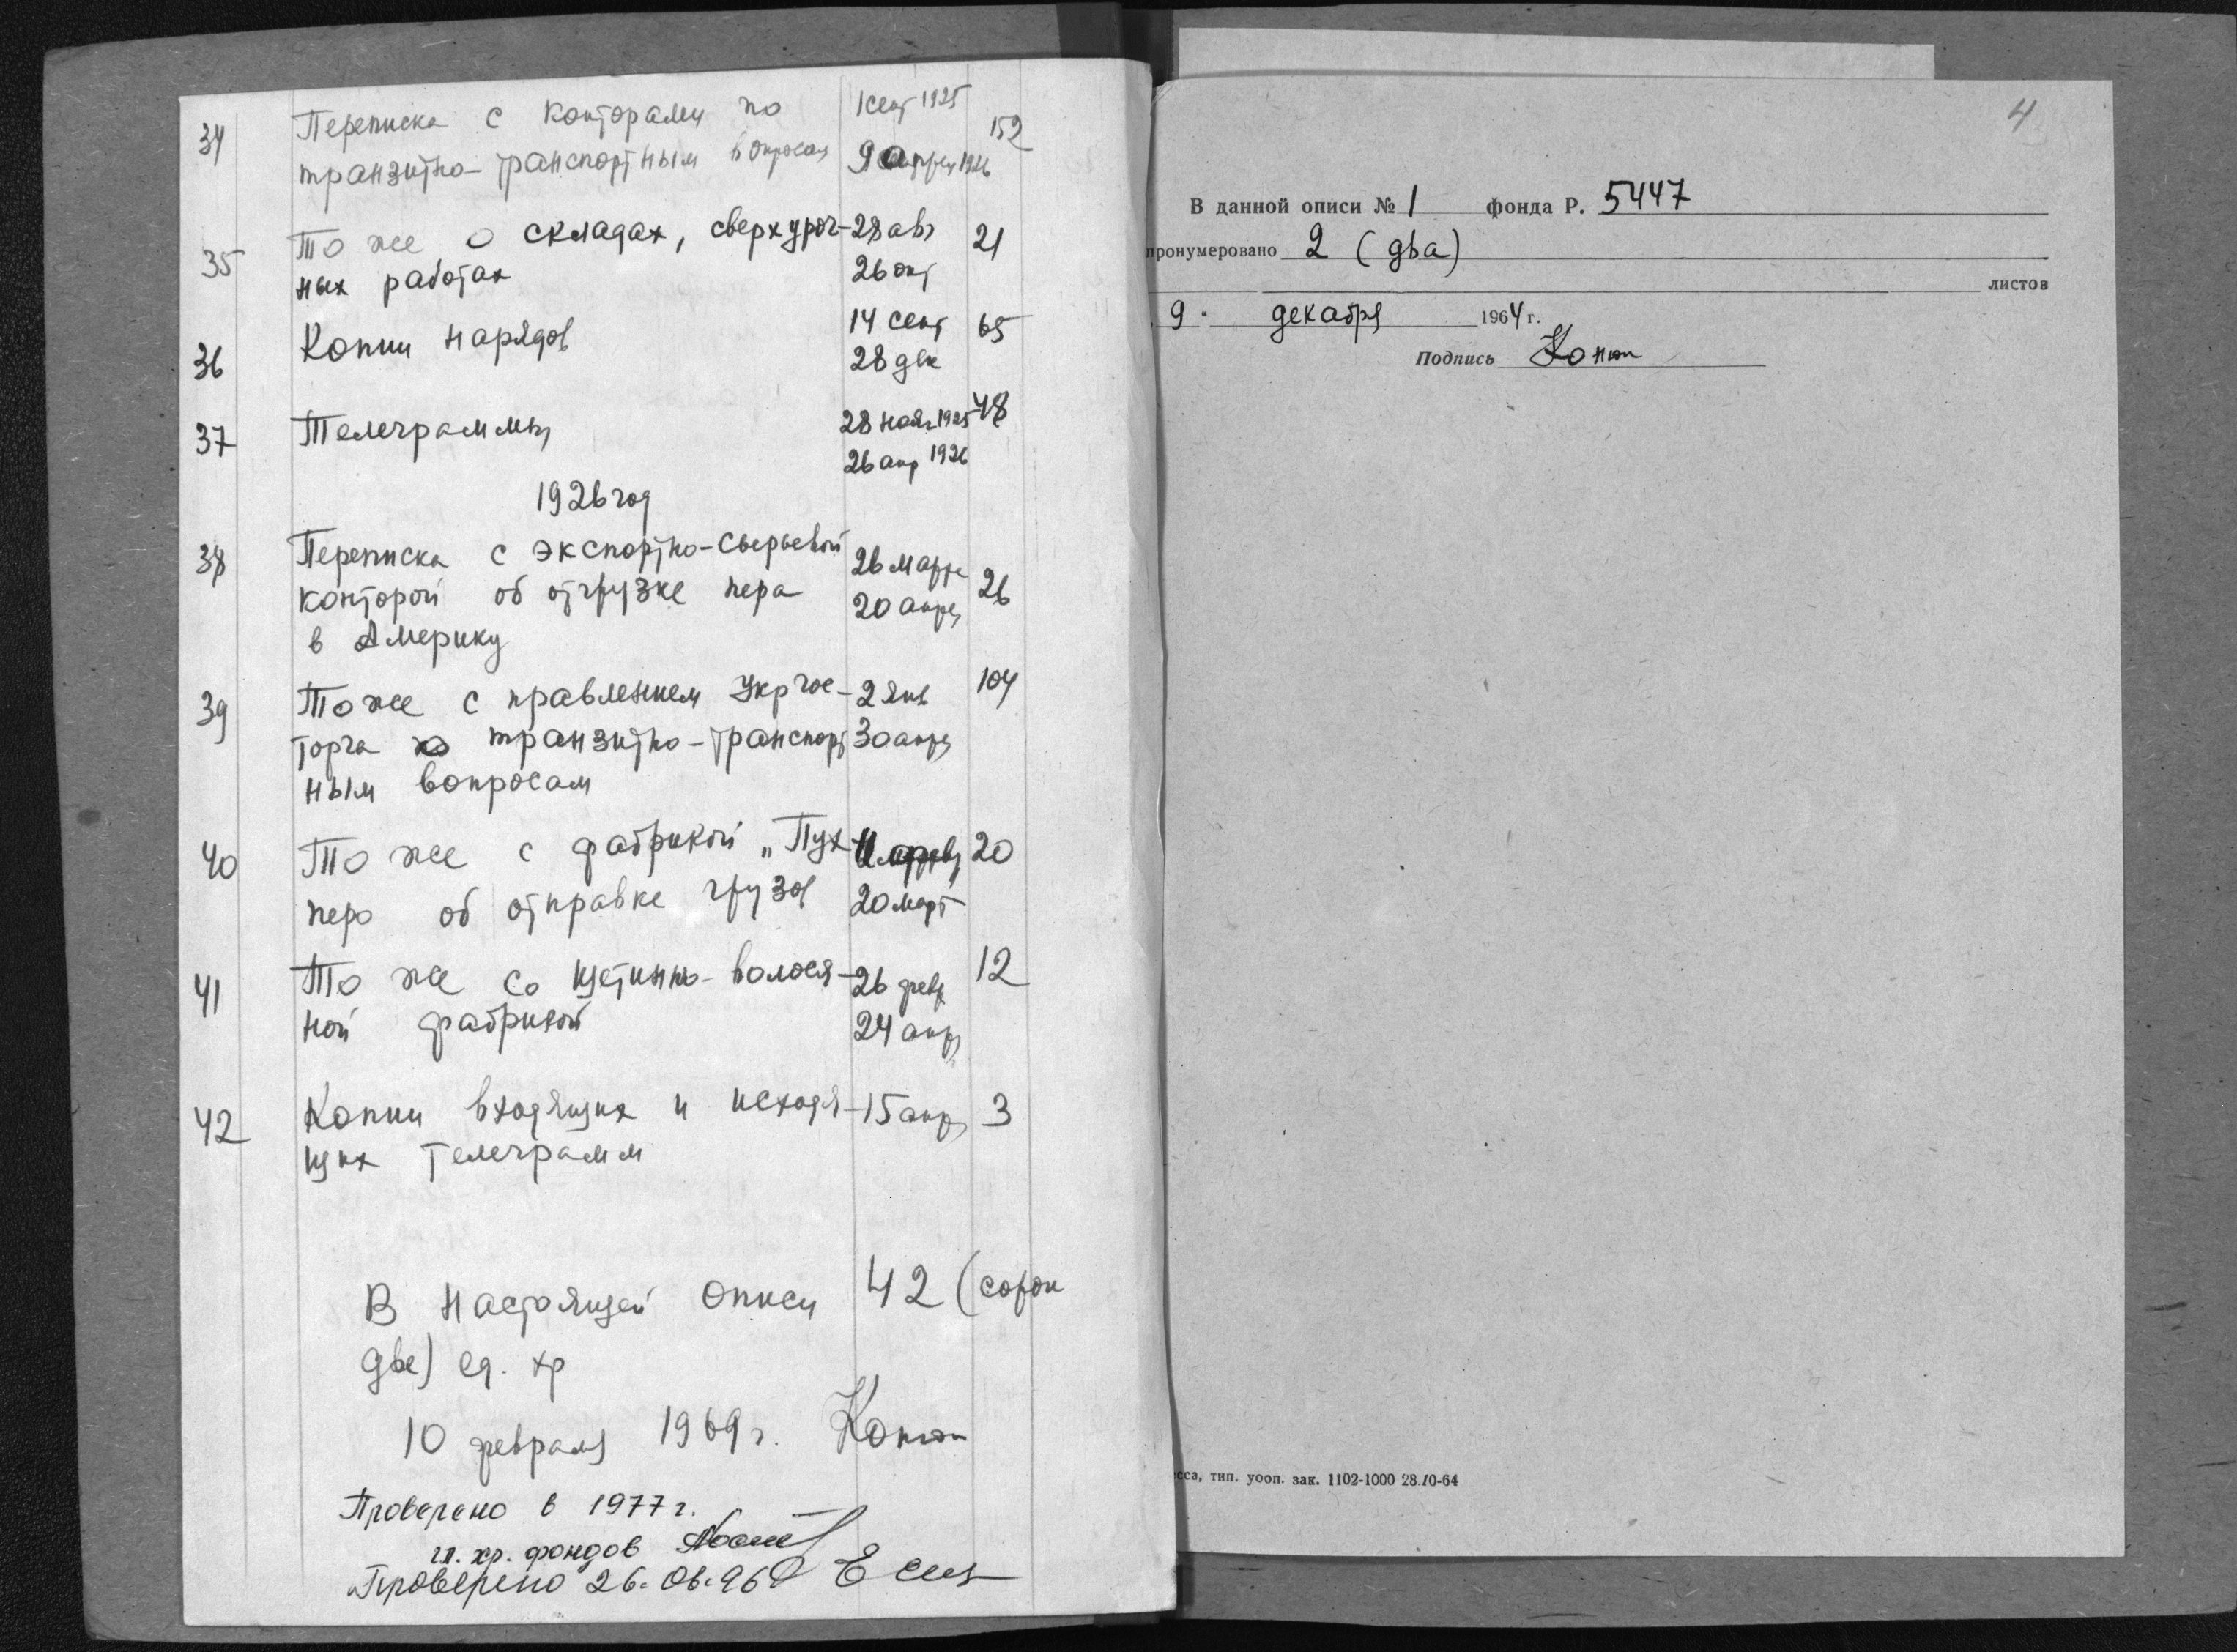 34 Переписка с конторами по 1 сент 1925 152
транзитно-транспортным вопросам 9 апрел 1926
35 То же о складах, сверхуроч- 28 авг 21
ных работах 26 окт
36 Копии нарядов 14 сент 65
28 дек
37 Телеграммы 28 нояб 1925 48
26 апр 1926
1926 год
38 Переписка с экспортно-сырьевой 26 марта 26
конторой об отгрузке пера 20 апрел
в Америку
39 То же с правлением Укргос- 2 янв 104
торга по транзитно-транспорт 30 апрел
ным вопросам
40 То же с фабрикой „Пух- 20
перо об отправке грузов 20 март
41 То же со щетинно-волося- 26 февр 12
ной фабрикой 24 апр
42 Копии входящих и исходя- 15 апр 3
щих телеграмм
В настоящей описи 42 (сорок
две) ед. хр
10 февраля 1969 г.
Проверено в 1977 г.
гл. хр. фондов
Проверено 26.06.96
4
В данной описи № 1 фонда Р. 5447
пронумеровано 2 (два)
листов
9. декабря 1964 г.
Подпись
сса, тип. уооп. зак. 1102-1000 28.10-64